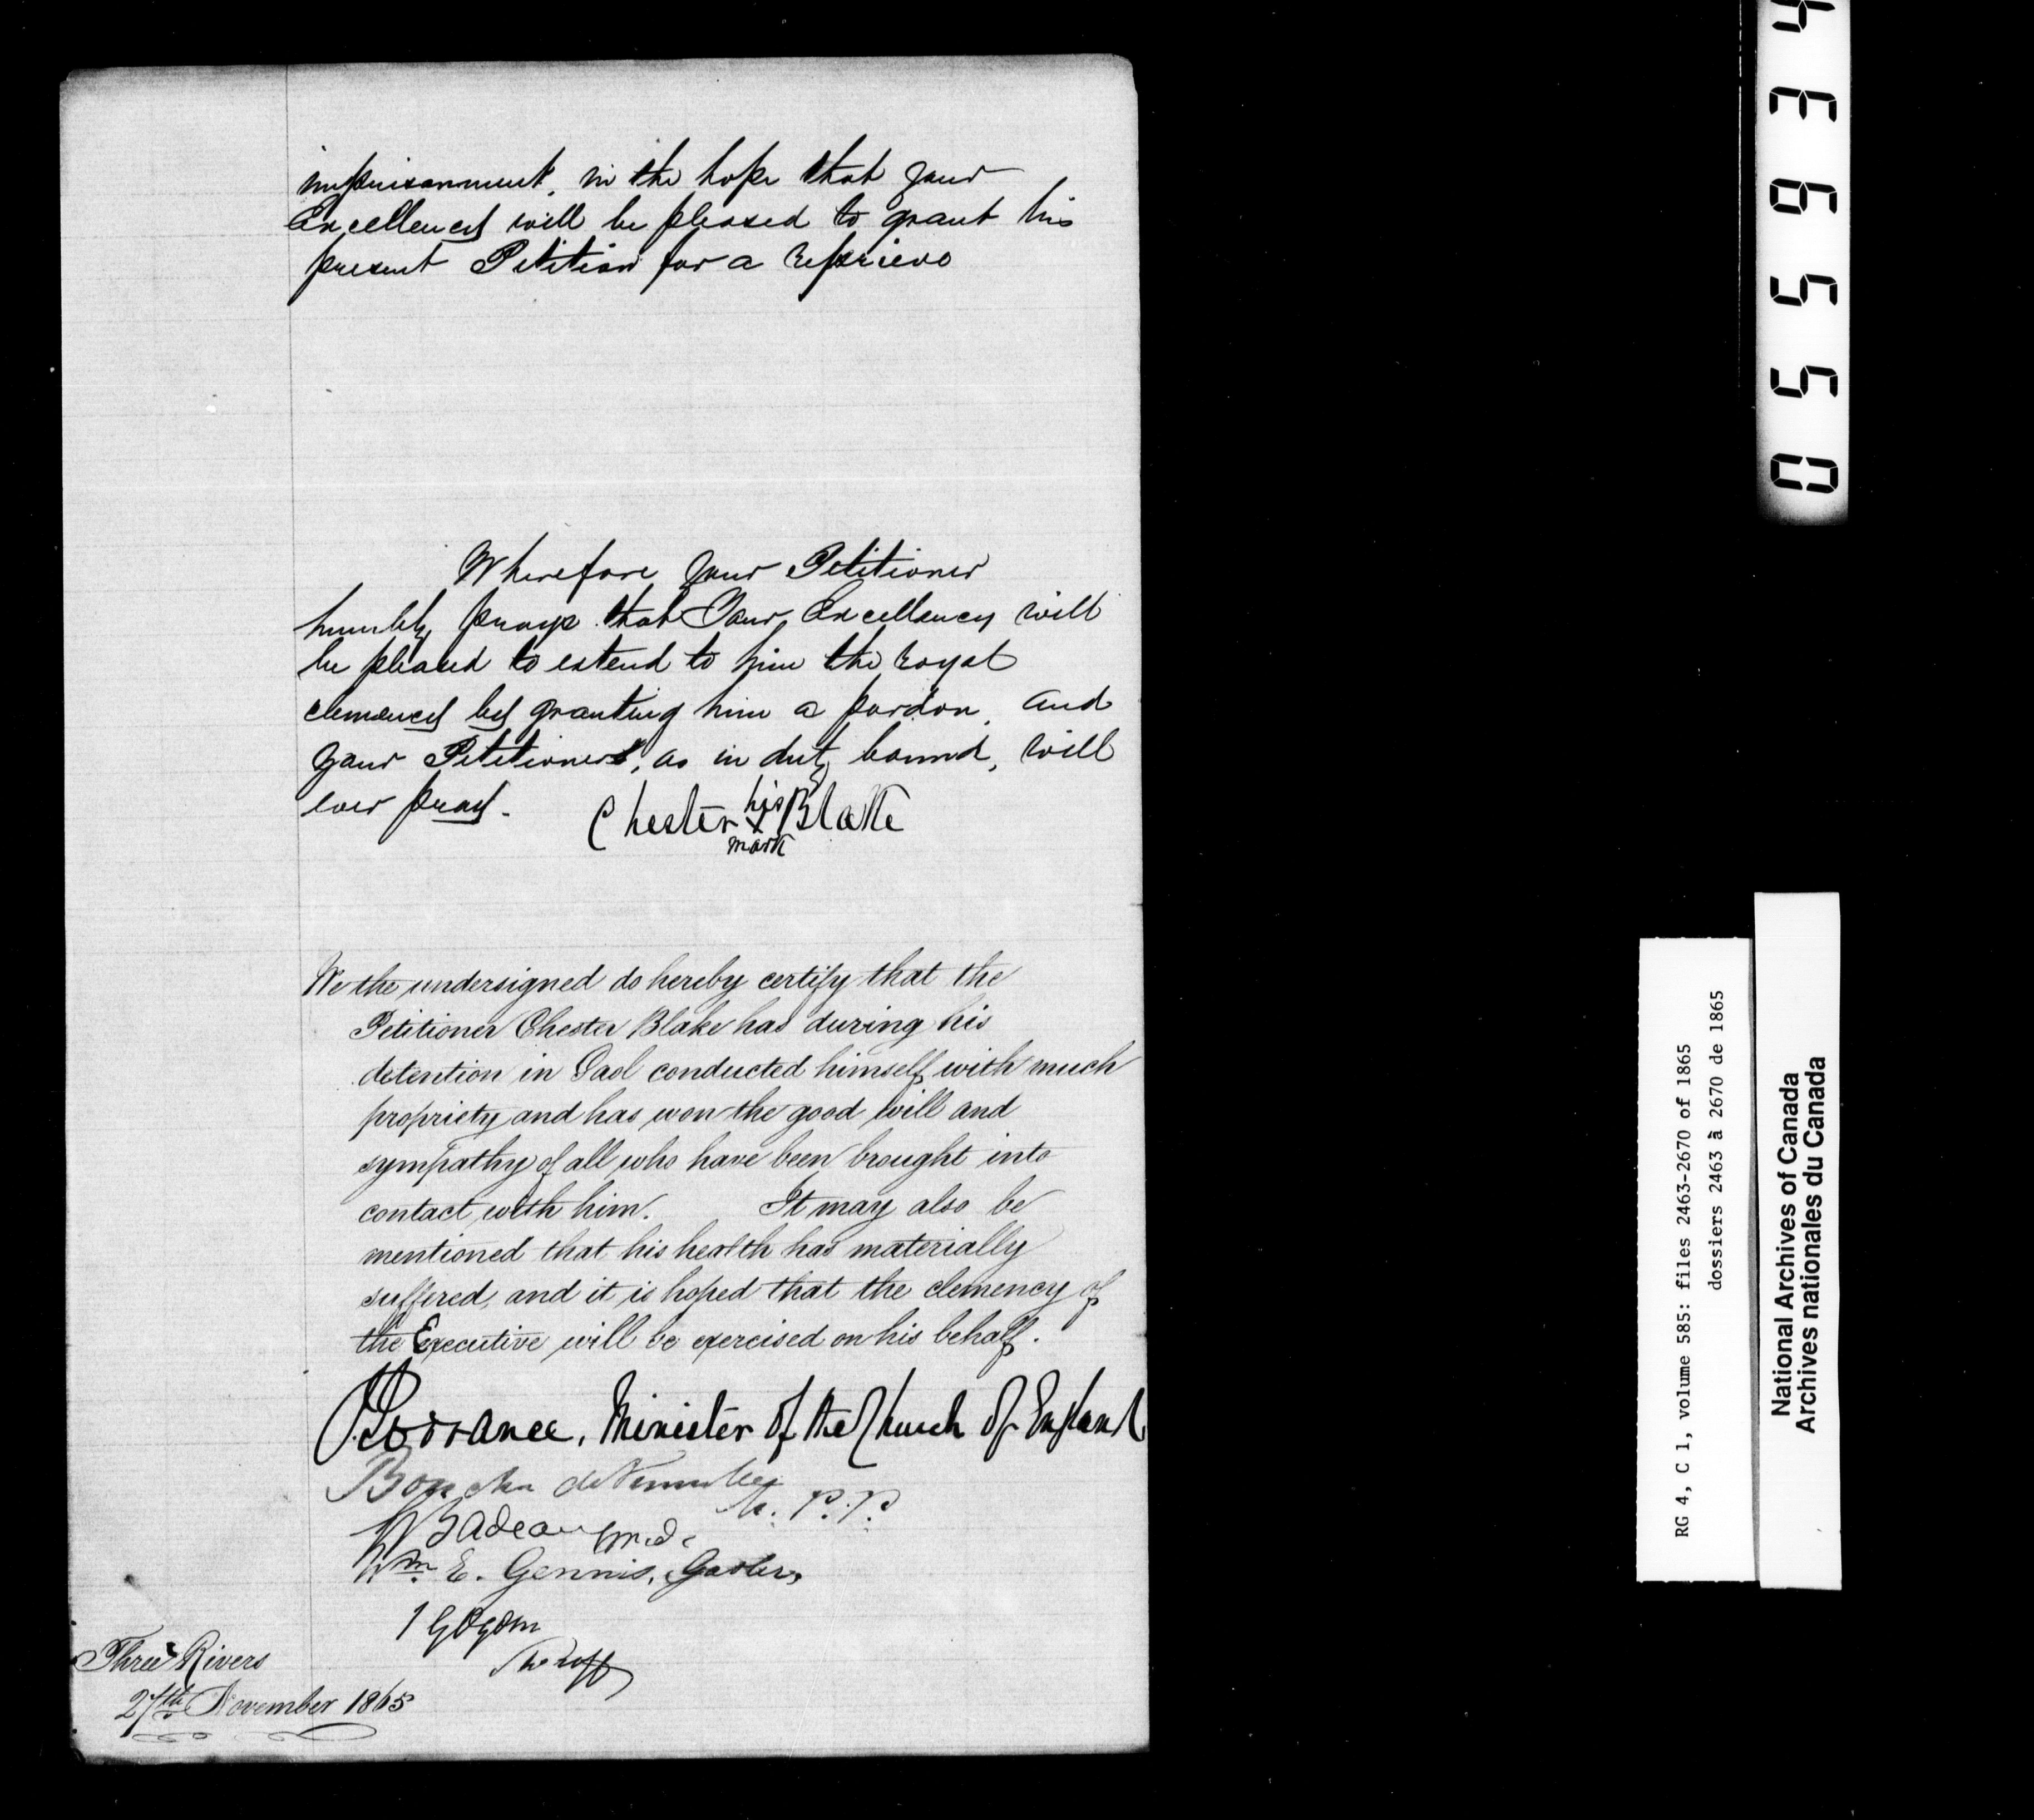 imprisonment, in the hope that your
Excellency will be pleased to grant his
present Petition for a reprieve
Wherefore your Petitioner
humbly prays that Your Excellency will
be pleased to extend to him the royal
clemency by granting him a pardon, and
your Petitioner, as in duty bound, will
ever pray.
Chester his x mark Blake
We the undersigned do hereby certify that the
Petitioner Chester Blake has during his
detention in Gaol conducted himself with much
propriety and has won the good will and
sympathy of all who have been brought into
contact with him. It may also be
mentioned that his health has materially
suffered, and it is hoped that the clemency of
the Executive will be exercised on his behalf.
Torrance, Minister of the Church of England
Boucher de
M.P.P.
Badeau m.d.
Wm. E. Gennis, Gaoler,
Sheriff
Three Rivers
27th November 1865
055934
RG 4, C 1, volume 585: files 2463-2670 of 1865
dossiers 2463 à 2670 de 1865
National Archives of Canada
Archives nationales du Canada